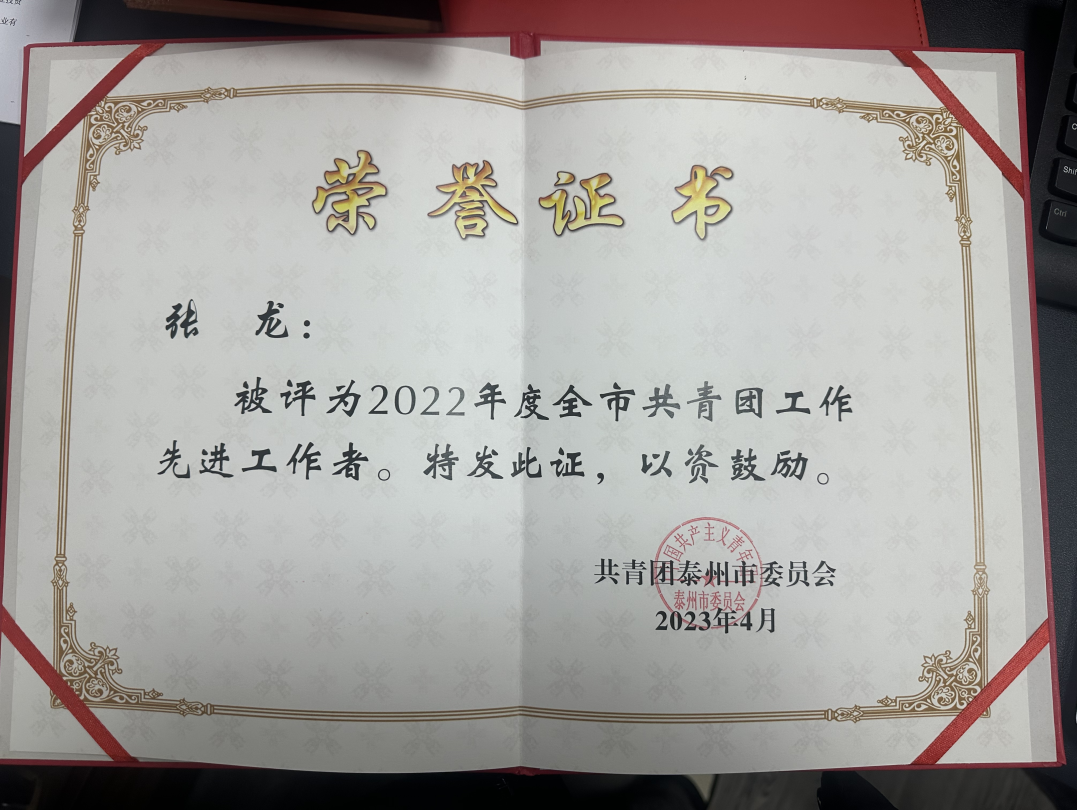 荣誉证书
张 龙：
被评为2022年度全市共青团工作
先进工作者。特发此证，以资鼓励。
共青团泰州市委员会
2023年4月
国共产主义青年
泰州市委员会
Shif
Ctrl
业有